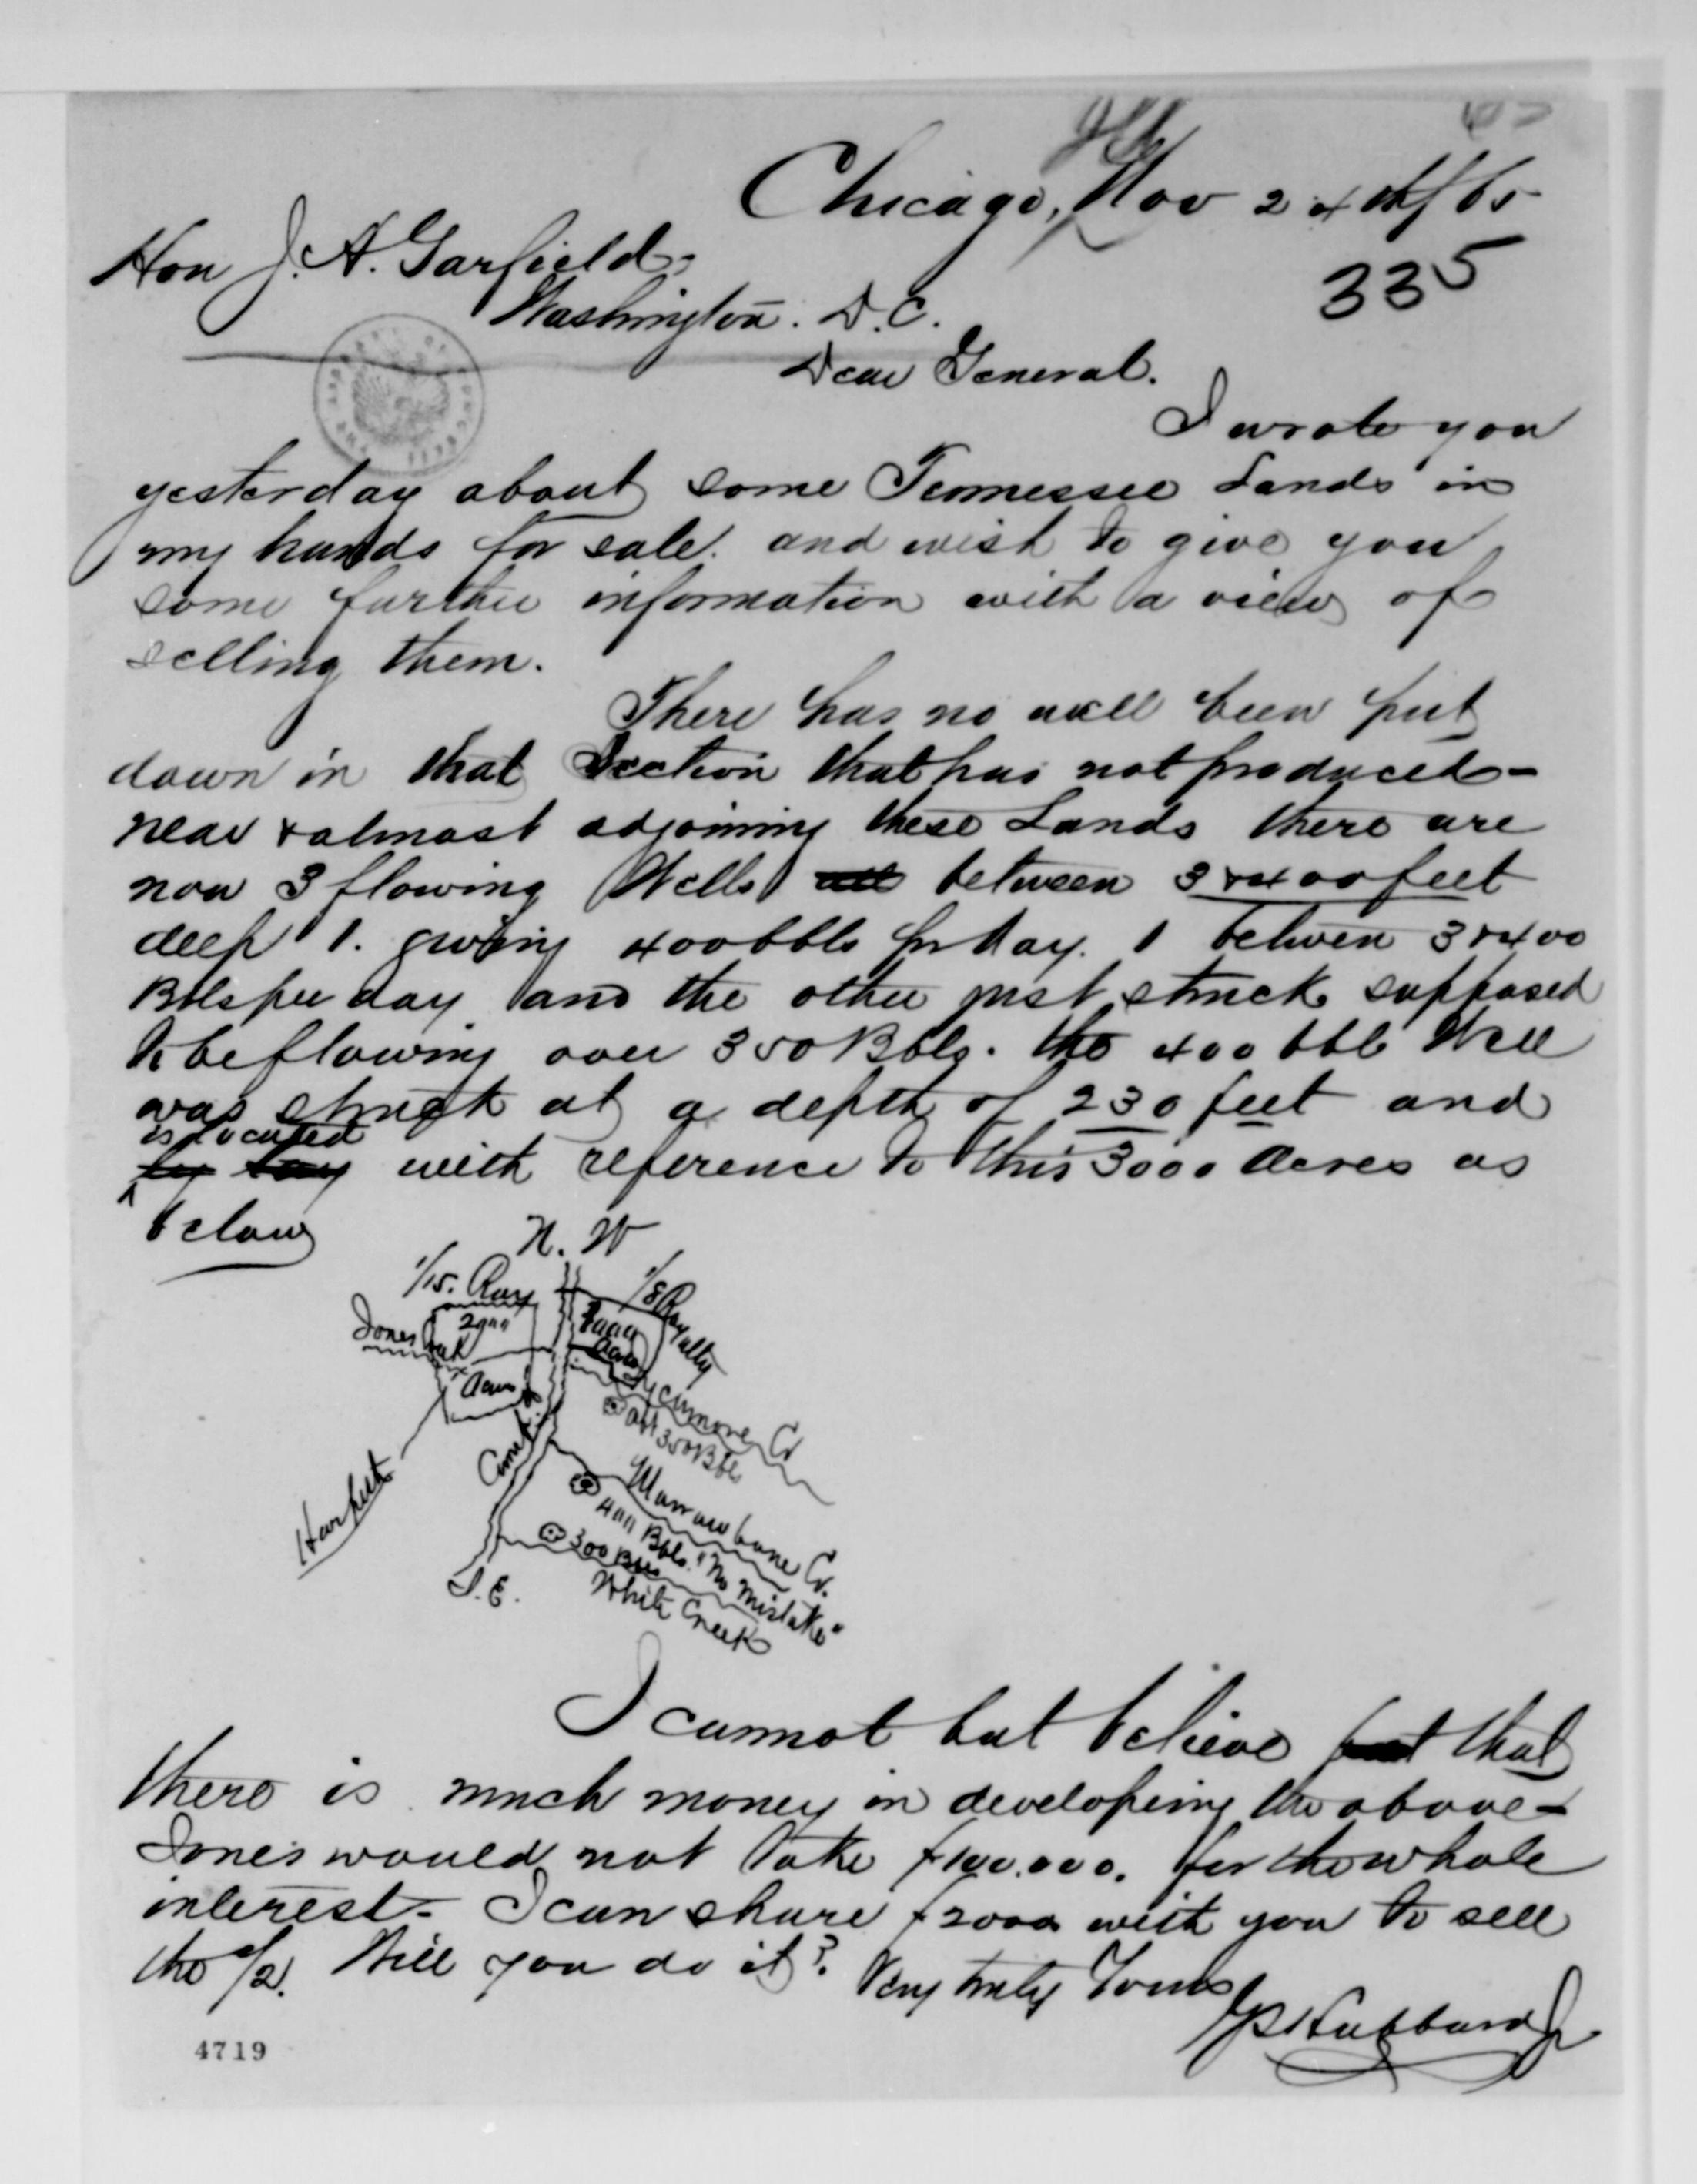 Chicago, Nov 24th/65
335
Hon J. A. Garfield,
Washington. D.C.
Dear General.
I wrote you
yesterday about some Tennessee Lands in
my hands for sale. and wish to give you
some further information with a view of
selling them.
There has no well been put
down in that Section that has not produced -
near & almost adjoining these Lands there are
now 3 flowing Wells all between 3 & 400 feet
deep 1. giving 400 bbls pr day. 1 between 3 & 400
Bbls per day and the other just struck supposed
to be flowing over 350 Bbls. the 400 bbl Well
was struck at a depth of 230 feet and
is located
with reference to this 3000 Acres as
below
N. W
1/15. Roy
1/8 Royalty
2000
Jones
Acres
Acres
Sycamore Cr
350 Bbls
Harpeth
Marrowbone Cr.
400 Bbls. "No Mistake"
300 Bbls
White Creek
S. E.
I cannot but believe but that
there is much money in developing the above -
Jones would not take $100.000. for the whole
interest - I can share $2000 with you to sell
the 1/2. Will you do it? Very truly Yours
GP Hubbard Jr
4719